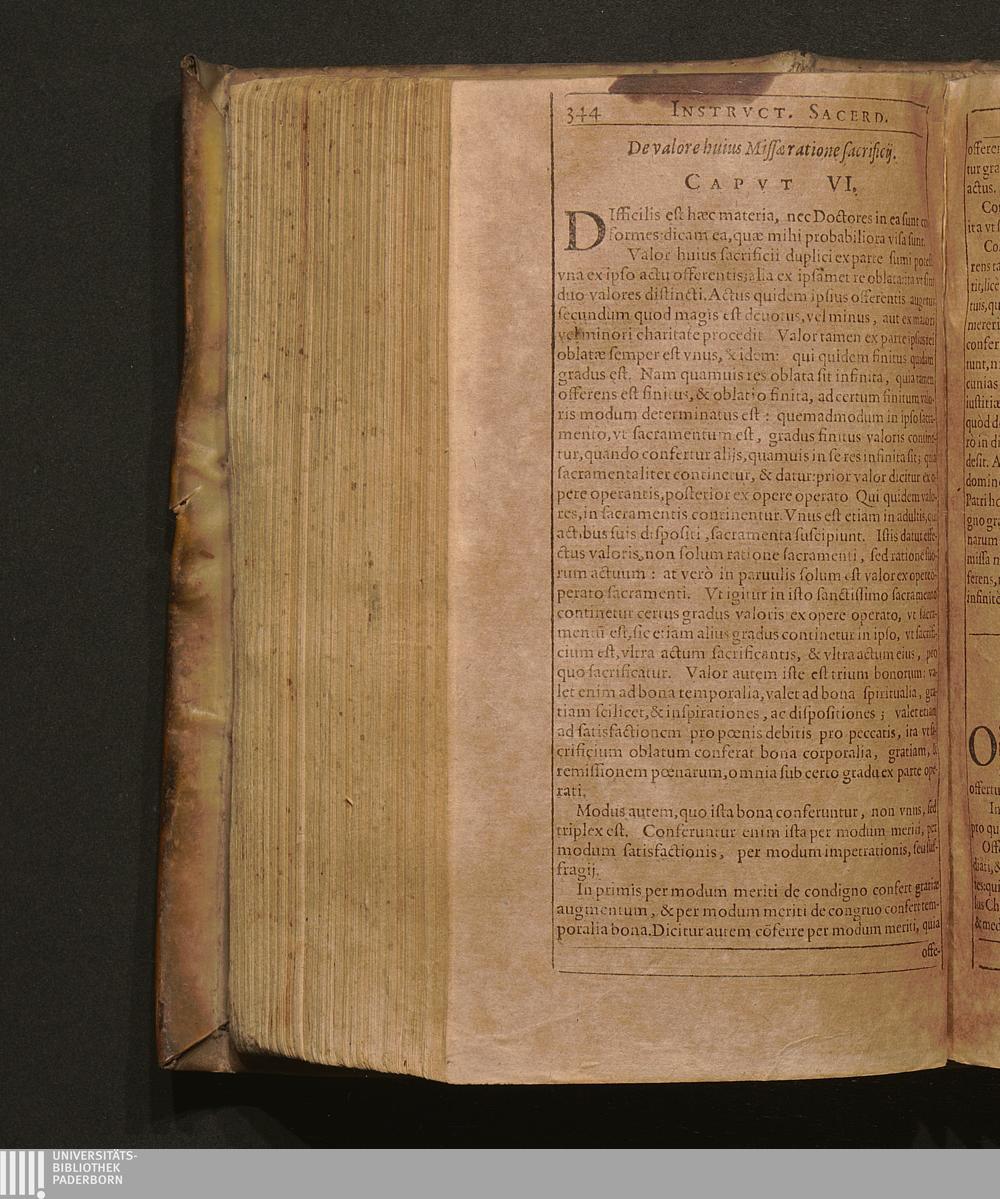 344 INSTRVCT. SACERD.
De valore huius Missæ ratione sacrificij.
CAPVT VI.
DIfficilis est hæc materia, nec Doctores in ea sunt
formes: dicam ea, quæ mihi probabiliora visa sunt.
Valor huius sacrificii duplici ex parte sumi potest
vna ex ipso actu offerentis; alia ex ipsamet re oblata: ita vt sint
duo valores distincti. Actus quidem ipsius offerentis augetur
secundum quod magis est deuotus, vel minus, aut ex maiori
vel minori charitate procedit. Valor tamen ex parte ipsius rei
oblatæ semper est vnus, & idem: qui quidem finitus quidam
gradus est. Nam quamuis res oblata sit infinita, quia tamen
offerens est finitus, & oblatio finita, ad certum finitum valo-
ris modum determinatus est: quemadmodum in ipso sacra-
mento, vt sacramentum est, gradus finitus valoris contine-
tur, quando confertur alijs, quamuis in se res infinita sit; quia
sacramentaliter continetur, & datur: prior valor dicitur ex o-
pere operantis, posterior ex opere operato Qui quidem valo-
res, in sacramentis continentur. Vnus est etiam in adultis, qui
actibus suis dispositi, sacramenta suscipiunt. Istis datur effe-
ctus valoris, non solum ratione sacramenti, sed ratione suo-
rum actuum: at verò in paruulis solum est valor ex opere o-
perato sacramenti. Vt igitur in isto sanctissimo sacramento
continetur certus gradus valoris ex opere operato, vt sacra-
mentū est, sic etiam alius gradus continetur in ipso, vt sacrifi-
cium est, vltra actum sacrificantis, & vltra actum eius, pro
quo sacrificatur. Valor autem iste est trium bonorum: va-
let enim ad bona temporalia, valet ad bona spiritualia, gra-
tiam scilicet, & inspirationes, ac dispositiones; valet etiam
ad satisfactionem pro pœnis debitis pro peccatis, ita vt sa-
crificium oblatum conferat bona corporalia, gratiam, &
remissionem pœnarum, omnia sub certo gradu ex parte ope-
rati.
Modus autem, quo ista bona conferuntur, non vnus, sed
triplex est. Conferuntur enim ista per modum meriti, per
modum satisfactionis, per modum impetrationis, seu suf-
fragij.
In primis per modum meriti de condigno confert gratiæ
augmentum, & per modum meriti de congruo confert tem-
poralia bona. Dicitur autem cōferre per modum meriti, quia
offe-
tur gra
actus.
ita vt s
rens ta
conser
cunias
iustitiæ
quòd d
rò in di
desit. A
domin
Patri ho
gno gra
missa n
ferens,
infinitè
offertu
pro qu
UNIVERSITÄTS-
BIBLIOTHEK
PADERBORN